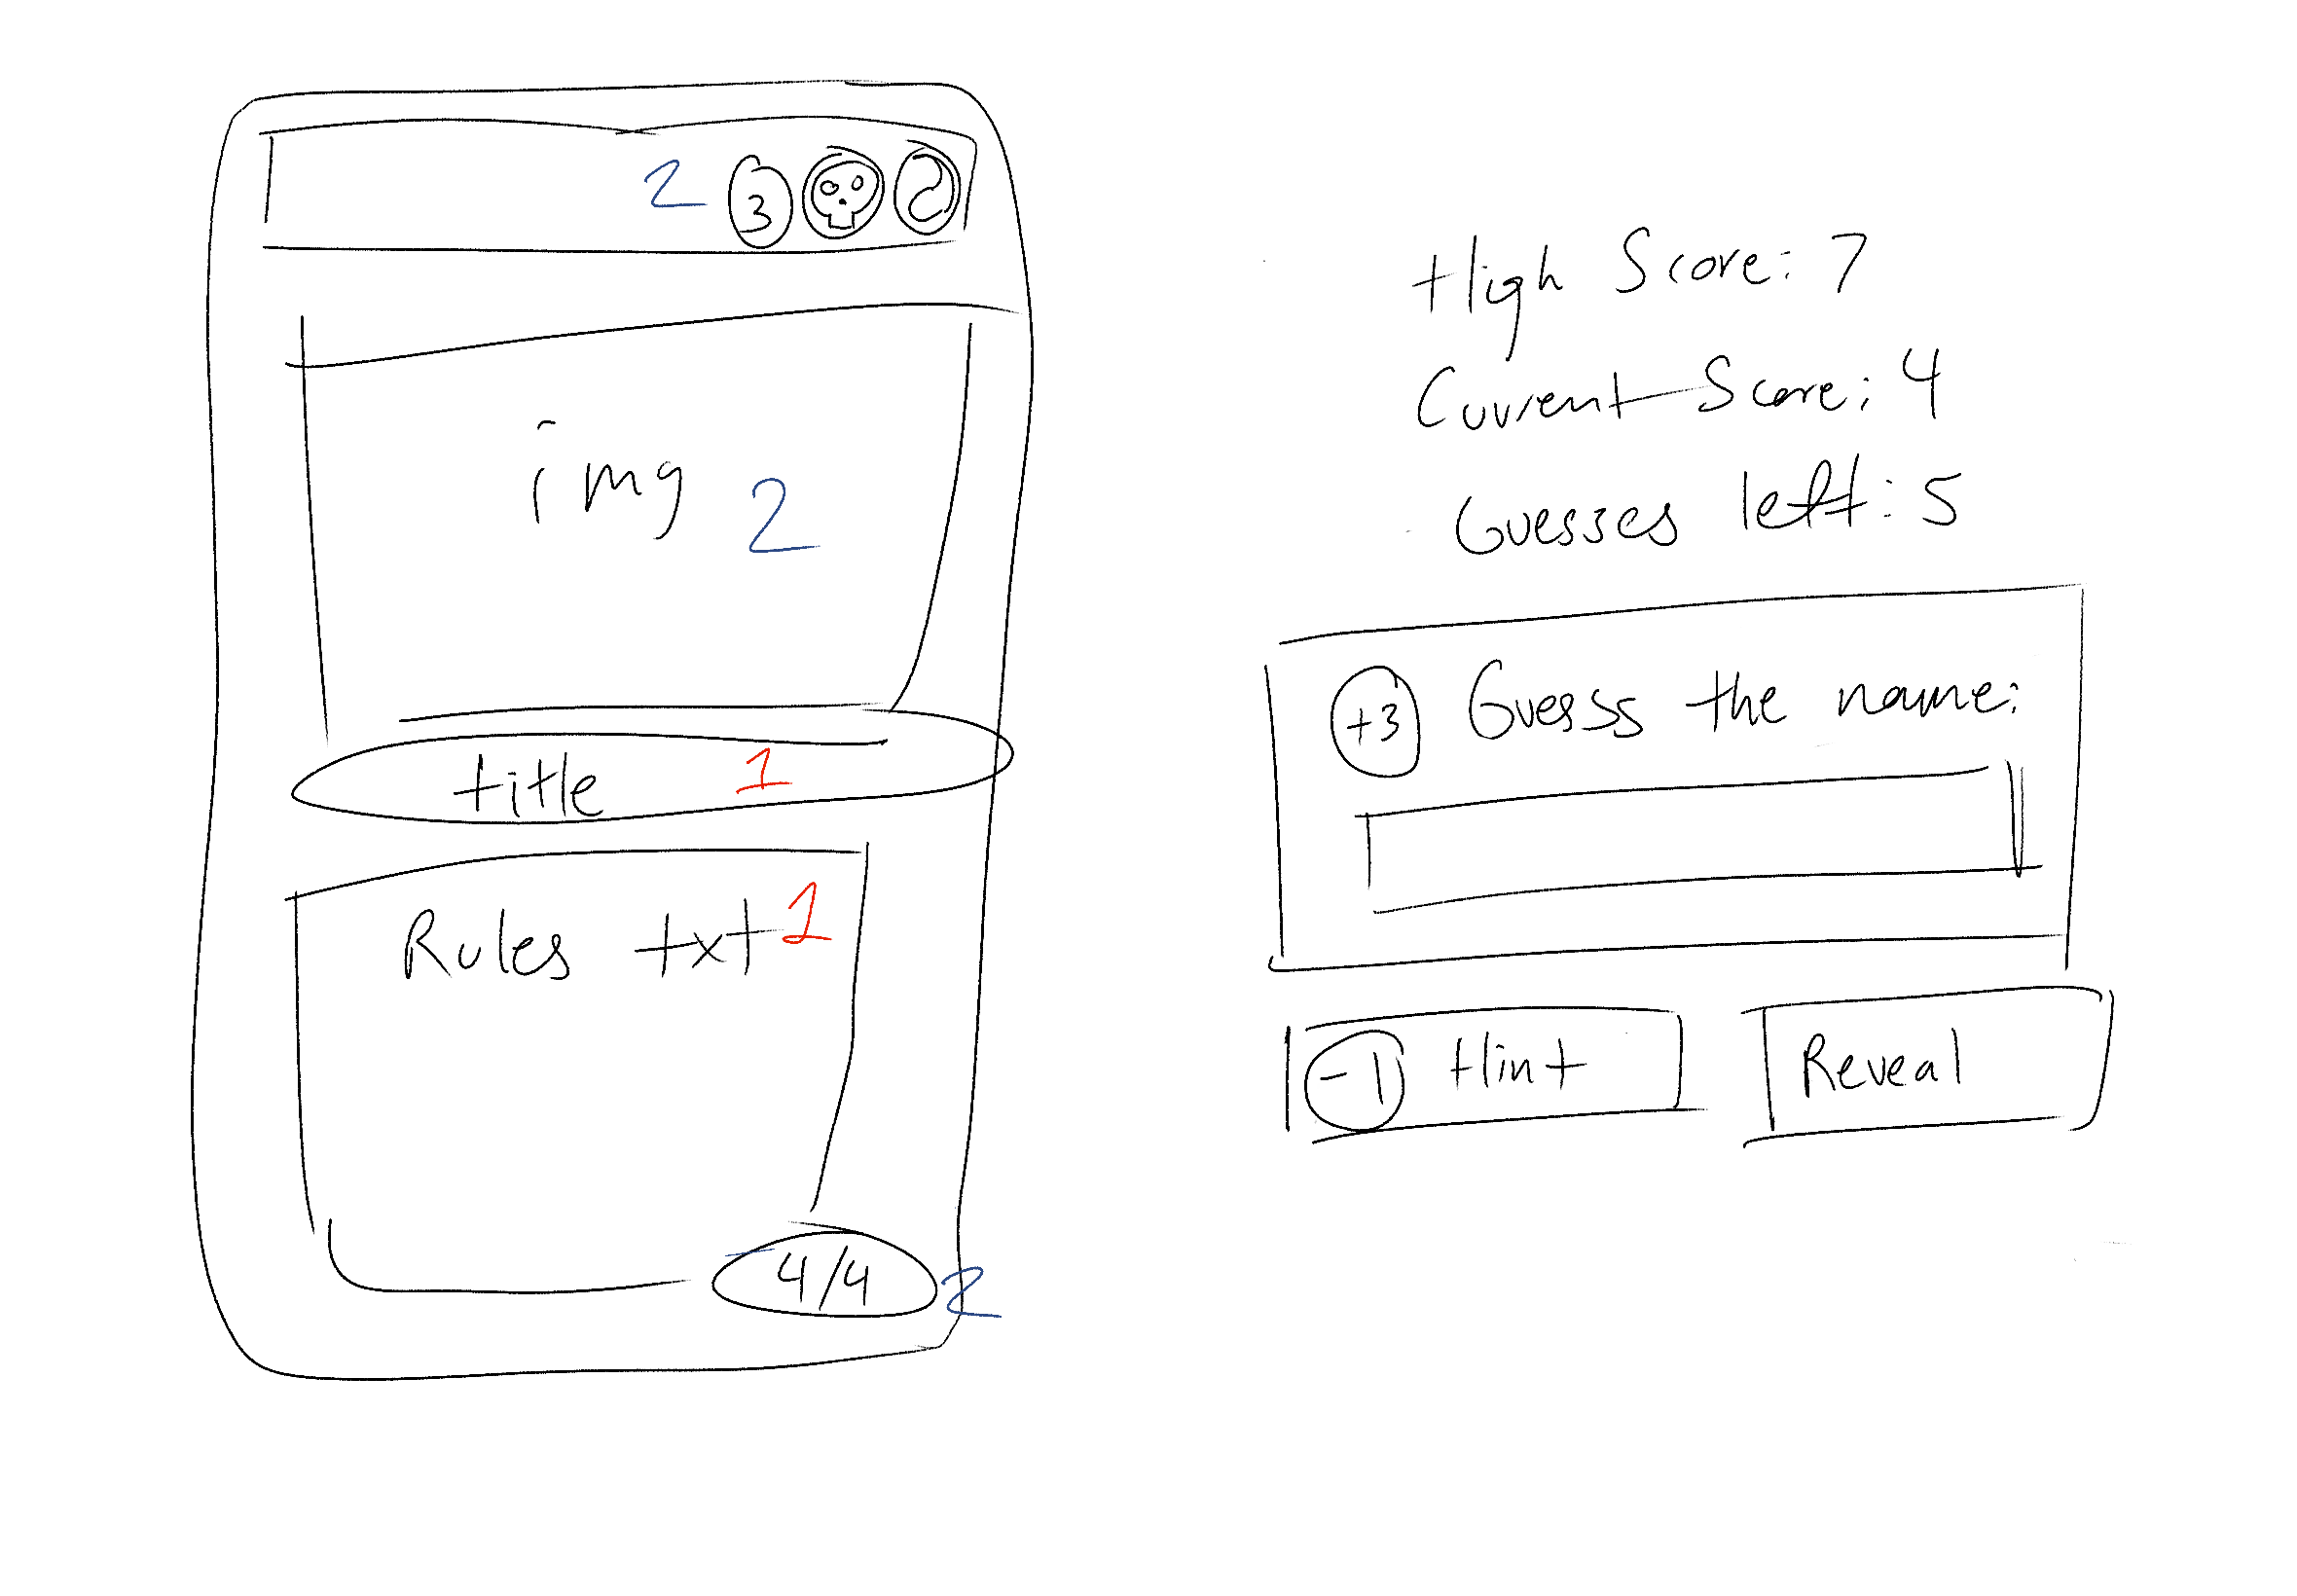 2 3
img 2
title 1
Rules txt 1
4/4 2
High Score: 7
Current Score: 4
Guesses left: 5
+3 Guesss the name:
-1 Hint
Reveal